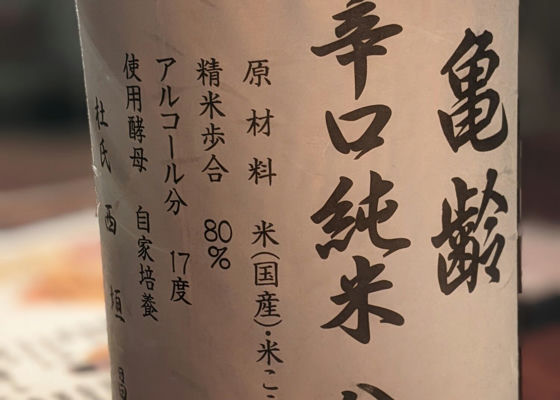 亀齢
辛口純米
原材料 米(国産)・米こ
精米歩合 80%
アルコール分 17度
使用酵母 自家培養
杜氏 西垣